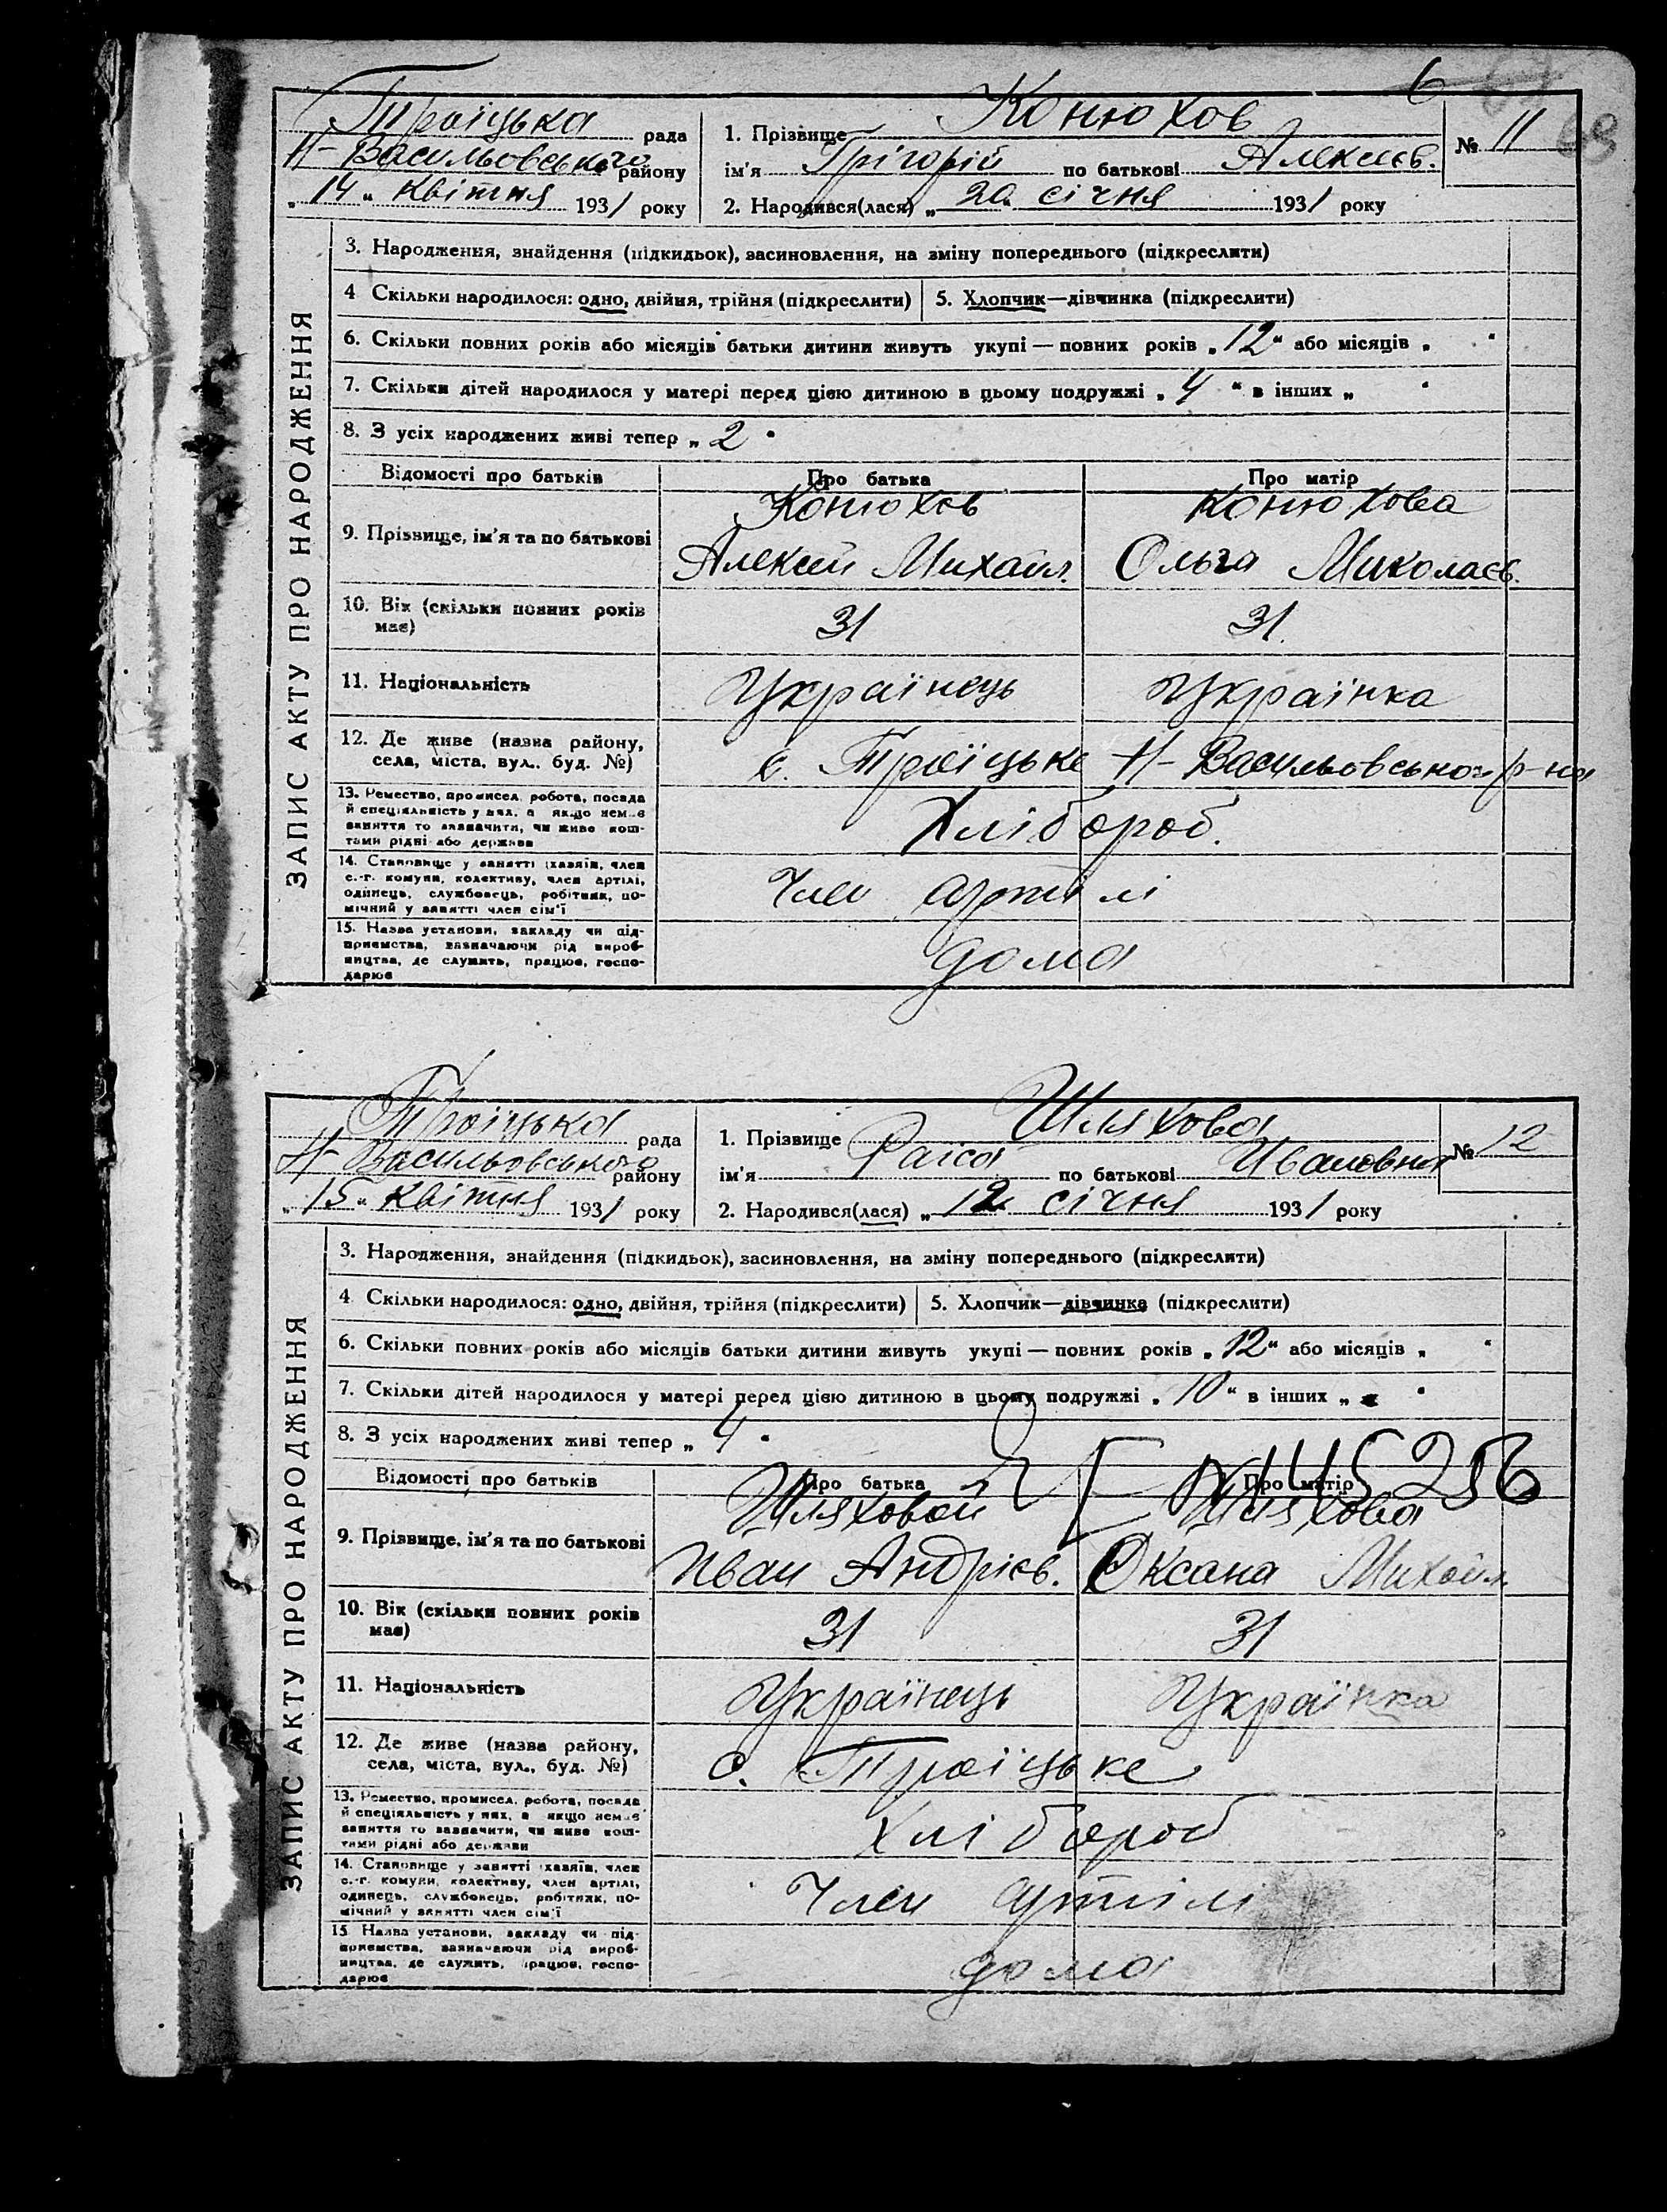 6
68
Троїцька рада
Н-Васильовського району
„14“ Квітня 1931 року
1. Прізвище Конюхов
ім'я Грігорій по батькові Алексеєв.
2. Народився(лася) „20“ січня 1931 року
№ 11
ЗАПИС АКТУ ПРО НАРОДЖЕННЯ
3. Народження, знайдення (підкидьок), засиновлення, на зміну попереднього (підкреслити)
4 Скільки народилося: одно, двійня, трійня (підкреслити) 5. Хлопчик—дівчинка (підкреслити)
6. Скільки повних років або місяців батьки дитини живуть укупі — повних років „12“ або місяців „ “
7. Скільки дітей народилося у матері перед цією дитиною в цьому подружжі „4“ в інших „ “
8. З усіх народжених живі тепер „2“
Відомості про батьків Про батька Про матір
Конюхов Конюхова
9. Прізвище, ім'я та по батькові
Алексій Михайл. Ольга Миколаєв.
10. Вік (скільки повних років має) 31 31
11. Національність Українець Українка
12. Де живе (назва району,
села, міста, вул., буд. №) с. Троїцьке Н-Васильовського р-на
13. Ремество, промисел, робота, посада
й спеціяльність у них, а якщо немає
заняття то зазначити, чи живе кош-
тами рідні або держави
Хлібороб.
14. Становище у занятті (хазяїн, член
с.-г. комуни, колективу, член артілі,
одинець, службовець, робітник, по-
мічний у занятті член сім'ї
Член артілі
15. Назва установи, закладу чи під-
приємства, зазначаючи рід вироб-
ництва, де служить, працює, госпо-
дарює
дома
Троїцька рада
Н-Васильовського району
„15“ Квітня 1931 року
1. Прізвище Шляхова
ім'я Раіса по батькові Ивановна
2. Народився(лася) „12“ січня 1931 року
№ 12
ЗАПИС АКТУ ПРО НАРОДЖЕННЯ
3. Народження, знайдення (підкидьок), засиновлення, на зміну попереднього (підкреслити)
4 Скільки народилося: одно, двійня, трійня (підкреслити) 5. Хлопчик—дівчинка (підкреслити)
6. Скільки повних років або місяців батьки дитини живуть укупі — повних років „12“ або місяців „ “
7. Скільки дітей народилося у матері перед цією дитиною в цьому подружжі „10“ в інших „ “
8. З усіх народжених живі тепер „4“
N 145256
Відомості про батьків Про батька Про матір
Шляховой Шляхова
9. Прізвище, ім'я та по батькові
Иван Андрієв. Оксана Михайл.
10. Вік (скільки повних років має) 31 31
11. Національність Українець Українка
12. Де живе (назва району,
села, міста, вул., буд. №) с. Троїцьке
13. Ремество, промисел, робота, посада
й спеціяльність у них, а якщо немає
заняття то зазначити, чи живе кош-
тами рідні або держави
Хлібороб
14. Становище у занятті (хазяїн, член
с.-г. комуни, колективу, член артілі,
одинець, службовець, робітник, по-
мічний у занятті член сім'ї
Член артілі
15 Назва установи, закладу чи під-
приємства, зазначаючи рід вироб-
ництва, де служить, працює, госпо-
дарює
дома